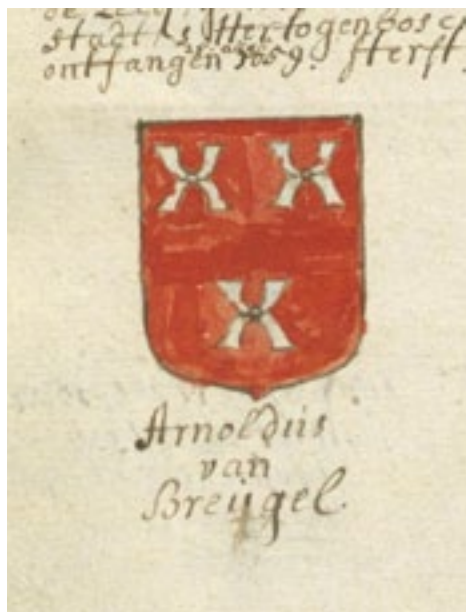 stadt 's Hertogenbosc
ontfangen 1659. sterft
Arnoldus
van
Breugel.